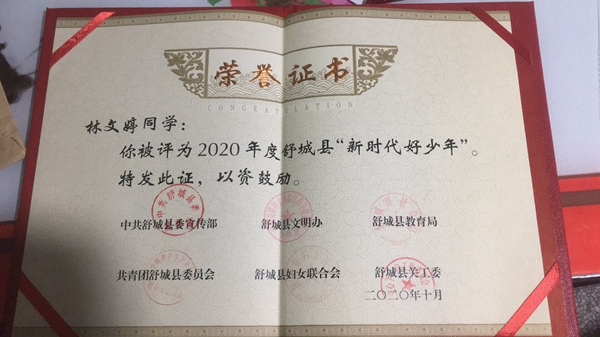 荣誉证书
CONGRATULATION
林文婷同学：
你被评为2020年度舒城县“新时代好少年”。
特发此证，以资鼓励。
中共舒城县委宣传部 舒城县文明办 舒城县教育局
共青团舒城县委员会 舒城县妇女联合会 舒城县关工委
二〇二〇年十月